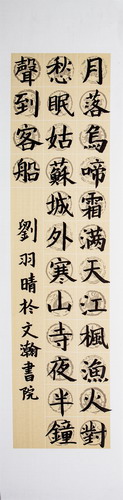 月落烏啼霜满天江楓漁火對
愁眠姑蘇城外寒山寺夜半鐘
聲到客船
劉羽晴於文瀚書院